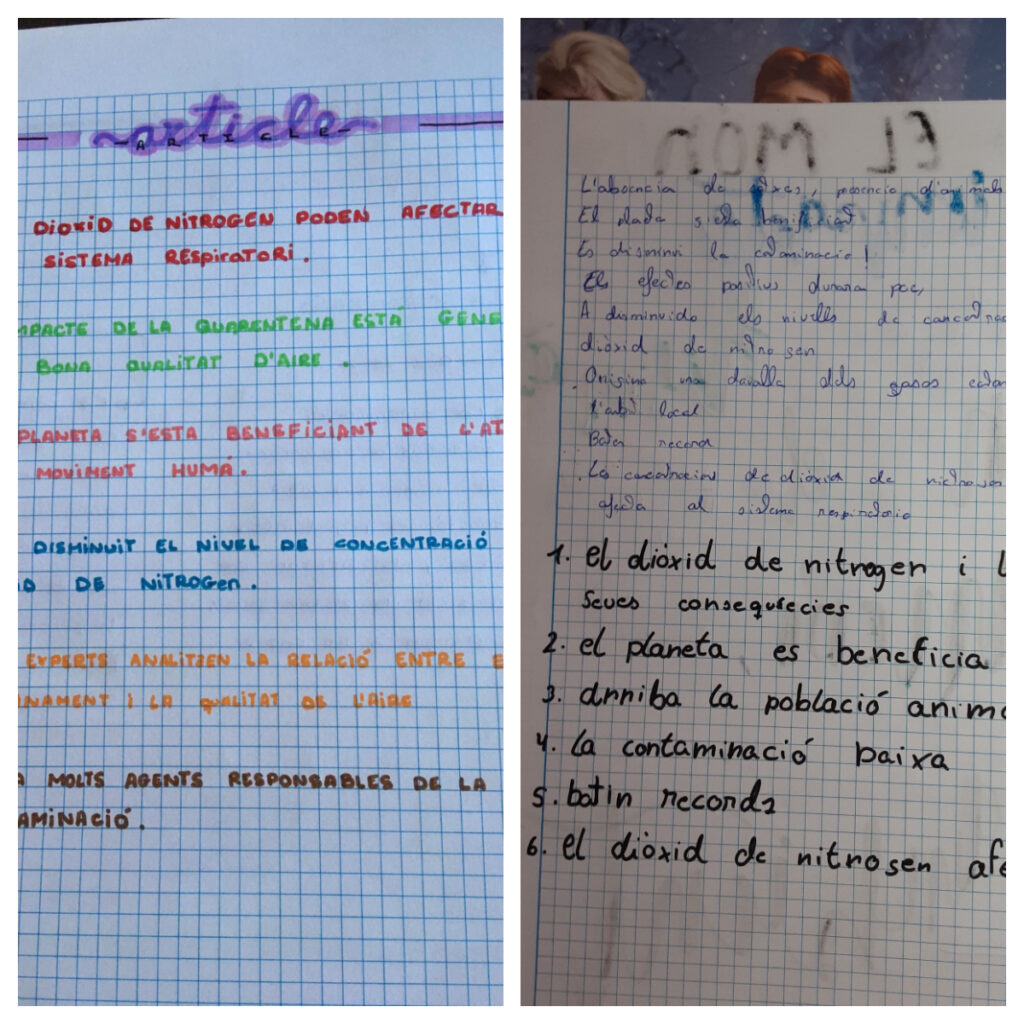 article
ARTICLE
DIOXID DE NITROGEN PODEN AFECTAR
SISTEMA RESPIRATORI.
MPACTE DE LA QUARENTENA ESTÁ GENE
BONA QUALITAT D'AIRE.
PLANETA S'ESTA BENEFICIANT DE L'AT
MOVIMENT HUMÁ.
DISMINUIT EL NIVEL DE CONCENTRACIÓ
D DE NITROGEN.
EXPERTS ANALITZEN LA RELACIÓ ENTRE E
NAMENT I LA QUALITAT DE L'AIRE
A MOLTS AGENTS RESPONSABLES DE LA
AMINACIÓ.
EL MON
L'abscncia de presencia d'animals
El
Es disminui la
Els efectes positius duraran poc,
A disminuido els nivells de
diòxid de nitrosen
Orisina una davalla dels gasos
local
Baten record
de diòxid de
al sistema respiratorio
1. el diòxid de nitrogen i l
seues consequiecies
2. el planeta es beneficia
3. arriba la població anima
4. la contaminació baixa
5. batin records
6. el diòxid de nitrosen afe